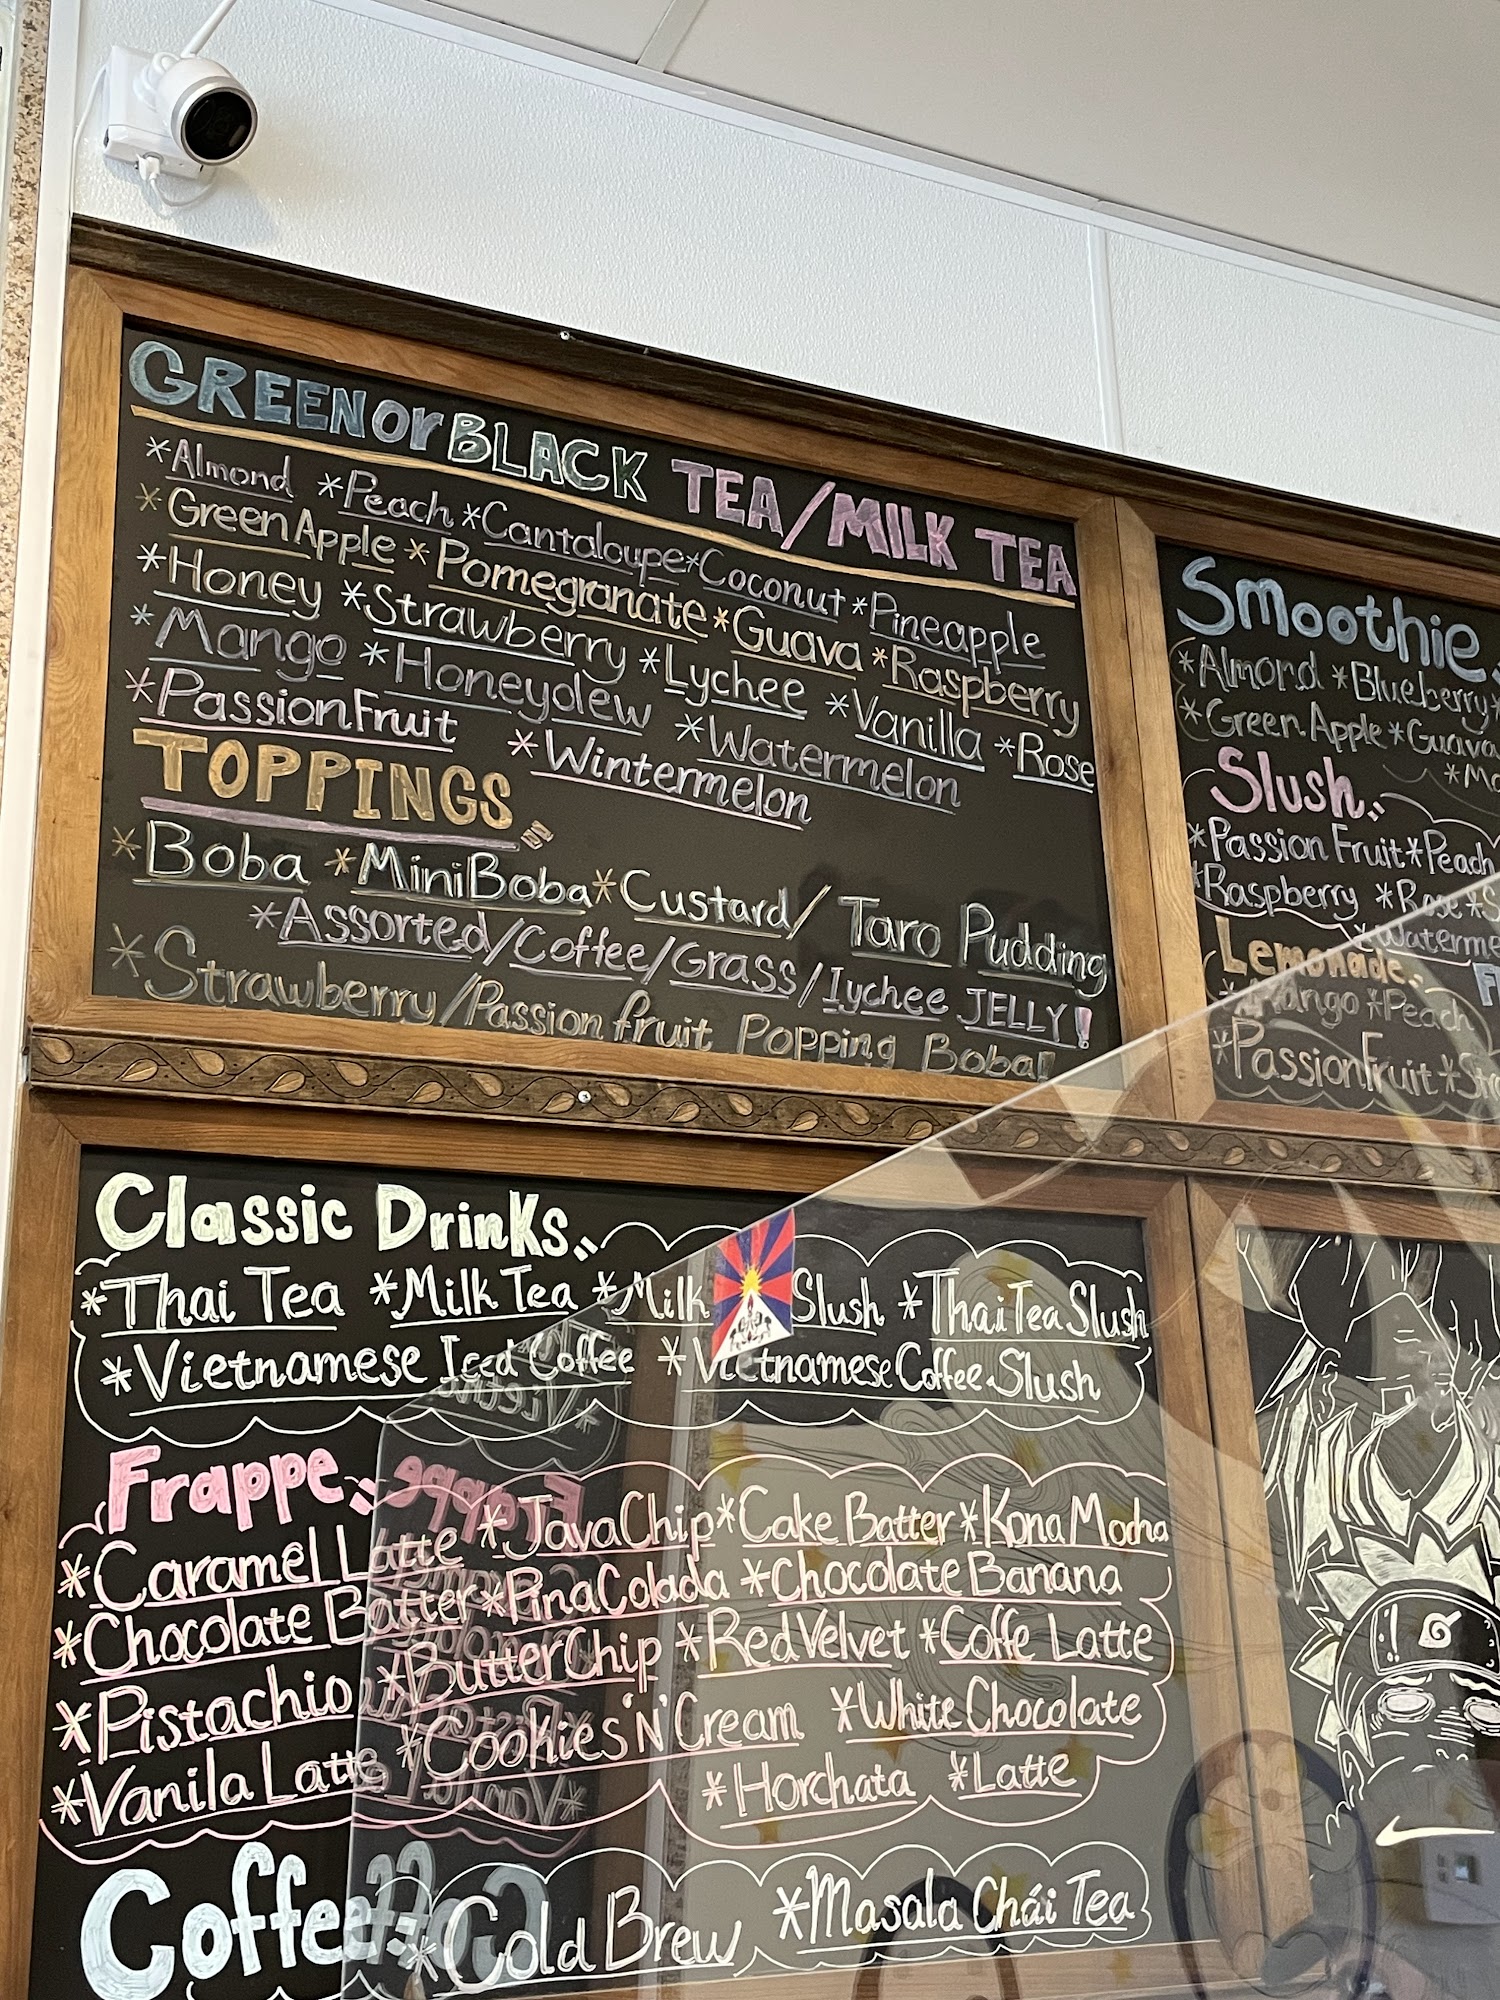 GREEN or BLACK TEA/MILK TEA
*Almond *Peach *Cantaloupe *Coconut *Pineapple
*Green Apple *Pomegranate *Guava *Raspberry
*Honey *Strawberry *Lychee *Vanilla *Rose
*Mango *Honeydew *Watermelon
*Passion Fruit *Wintermelon
TOPPINGS
*Boba *Mini Boba *Custard/ Taro Pudding
*Assorted/Coffee/Grass/lychee JELLY!
*Strawberry/Passion fruit Popping Boba!
Smoothie
*Almond *Blueberry*
*Green Apple *Guava
Slush
*Passion Fruit *Peach
*Raspberry *Rose
Lemonade
*Mango *Peach
*Passion Fruit
Classic Drinks
*Thai Tea *Milk Tea *Milk Slush *Thai Tea Slush
*Vietnamese Iced Coffee *Vietnamese Coffee Slush
Frappe
*Caramel Latte *Java Chip *Cake Batter *Kona Mocha
*Chocolate Batter *Pina Colada *Chocolate Banana
*Pistachio *ButterChip *Red Velvet *Coffe Latte
*Vanila Latte *Cookies 'N' Cream *White Chocolate
*Horchata *Latte
Coffee
*Cold Brew *Masala Chái Tea